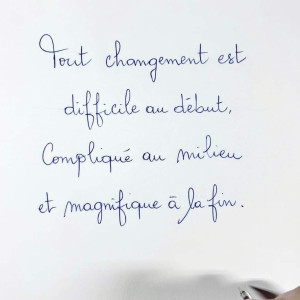 Tout changement est
difficile au début,
Compliqué au milieu
et magnifique à la fin.